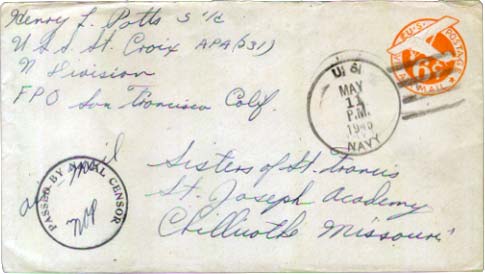 Henry L. Potts S 1/c
USS St. Croix APA (231)
N Division
FPO San Francisco Calif.
U.S. POSTAGE
6¢
AIR MAIL
MAY
11
P.M.
NAVY
air mail
PASSED BY NAVAL CENSOR
Sisters of St. Francis
St. Joseph Academy
Chillicothe Missouri